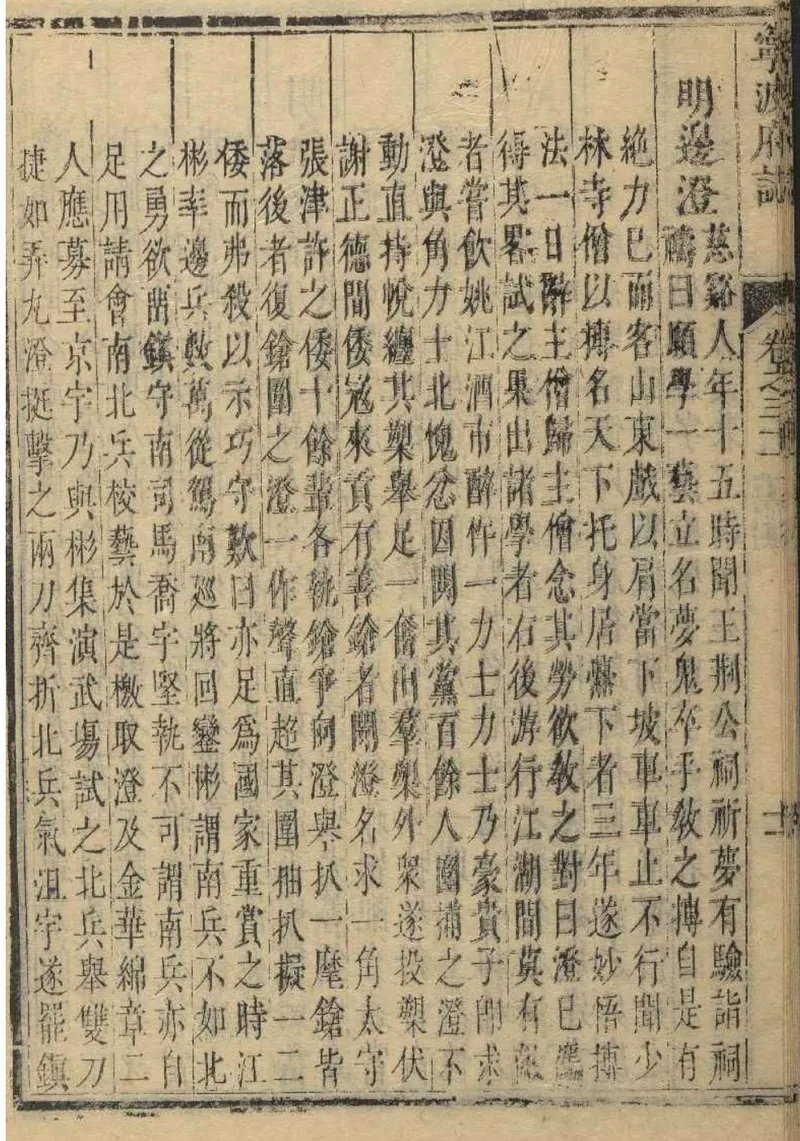 寧波府誌
卷之三十一
明邊澄慈谿人年十五時聞王荆公祠祈夢有驗詣祠
禱曰願學一藝立名夢鬼卒手敎之搏自是有
絶力已而客山東戲以肩當下坡車車止不行聞少
林寺僧以搏名天下托身居爨下者三年遂妙悟搏
法一日辭主僧歸主僧念其勞欲敎之對曰澄已
得其畧試之果出諸學者右後游行江湖間莫有
者嘗飲姚江酒市醉忤一力士力士乃豪貴子卽求
澄與角力士北愧忿因閧其黨百餘人圍捕之澄不
動直持帨纏其槊舉足一僭出羣槊外衆遂投槊伏
謝正德間倭寇來貢有善鎗者聞澄名求一角太守
張津許之倭十餘輩各執鎗爭向澄舉扒一麾鎗皆
落後者復鎗圍之澄一作聲直超其圍抽扒擬一二
倭而弗殺以示巧守歎曰亦足爲國家重賞之時江
彬率邊兵數萬從駕南廵將回鑾彬謂南兵不如北
之勇欲畱鎮守南司馬喬宇堅執不可謂南兵亦自
足用請會南北兵校藝於是檄取澄及金華綿章二
人應募至京宇乃與彬集演武塲試之北兵舉雙刀
捷如弄丸澄挺擊之兩刀齊折北兵氣沮宇遂罷鎮